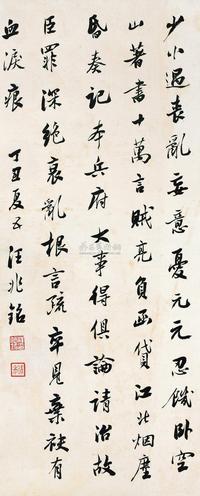 少小遇喪亂妄意憂元元忍饑卧空
山著書十萬言賊亮負函貸江北烟塵
昏奏記本兵府大事得俱論請治故
臣罪深絶衰亂根言疏卒見棄袂有
血淚痕 丁丑夏五 汪兆銘